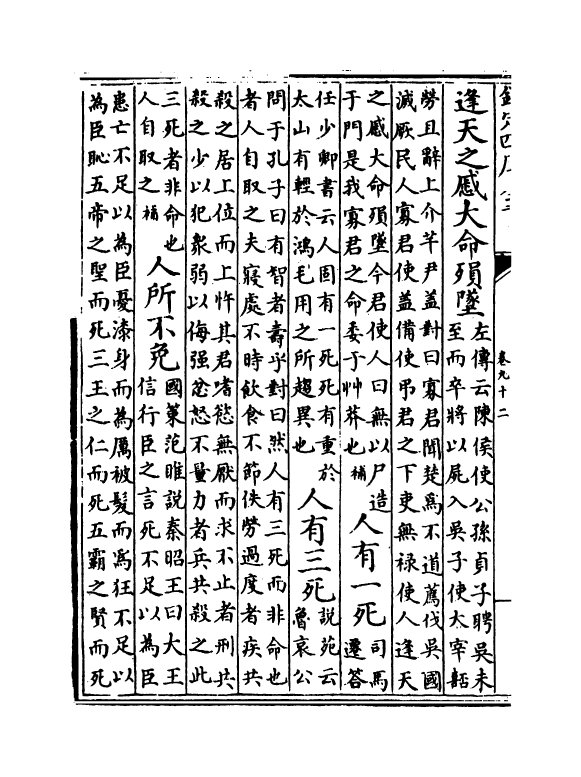 卷九十二
逢天之慼大命殞墜
左傳云陳侯使公孫貞子聘吳未
至而卒將以屍入吳子使太宰嚭
勞且辭上介芊尹蓋對曰寡君聞楚為不道薦伐吳國
滅厥民人寡君使蓋備使弔君之下吏無禄使人逢天
之慼大命殞墜今君使人曰無以尸造
于門是我寡君之命委于艸莽也補
人有一死
司馬
遷答
任少卿書云人固有一死死有重於
太山有輕於鴻毛用之所趨異也
人有三死
說苑云
魯哀公
問于孔子曰有智者壽乎對曰然人有三死而非命也
者人自取之夫寢處不時飲食不節佚勞過度者疾共
殺之居上位而上忤其君嗜慾無厭而求不止者刑共
殺之少以犯衆弱以侮强忿怒不量力者兵共殺之此
三死者非命也
人自取之補
人所不免
國策范睢說秦昭王曰大王
信行臣之言死不足以為臣
患亡不足以為臣憂漆身而為厲被髮而為狂不足以
為臣恥五帝之聖而死三王之仁而死五霸之賢而死